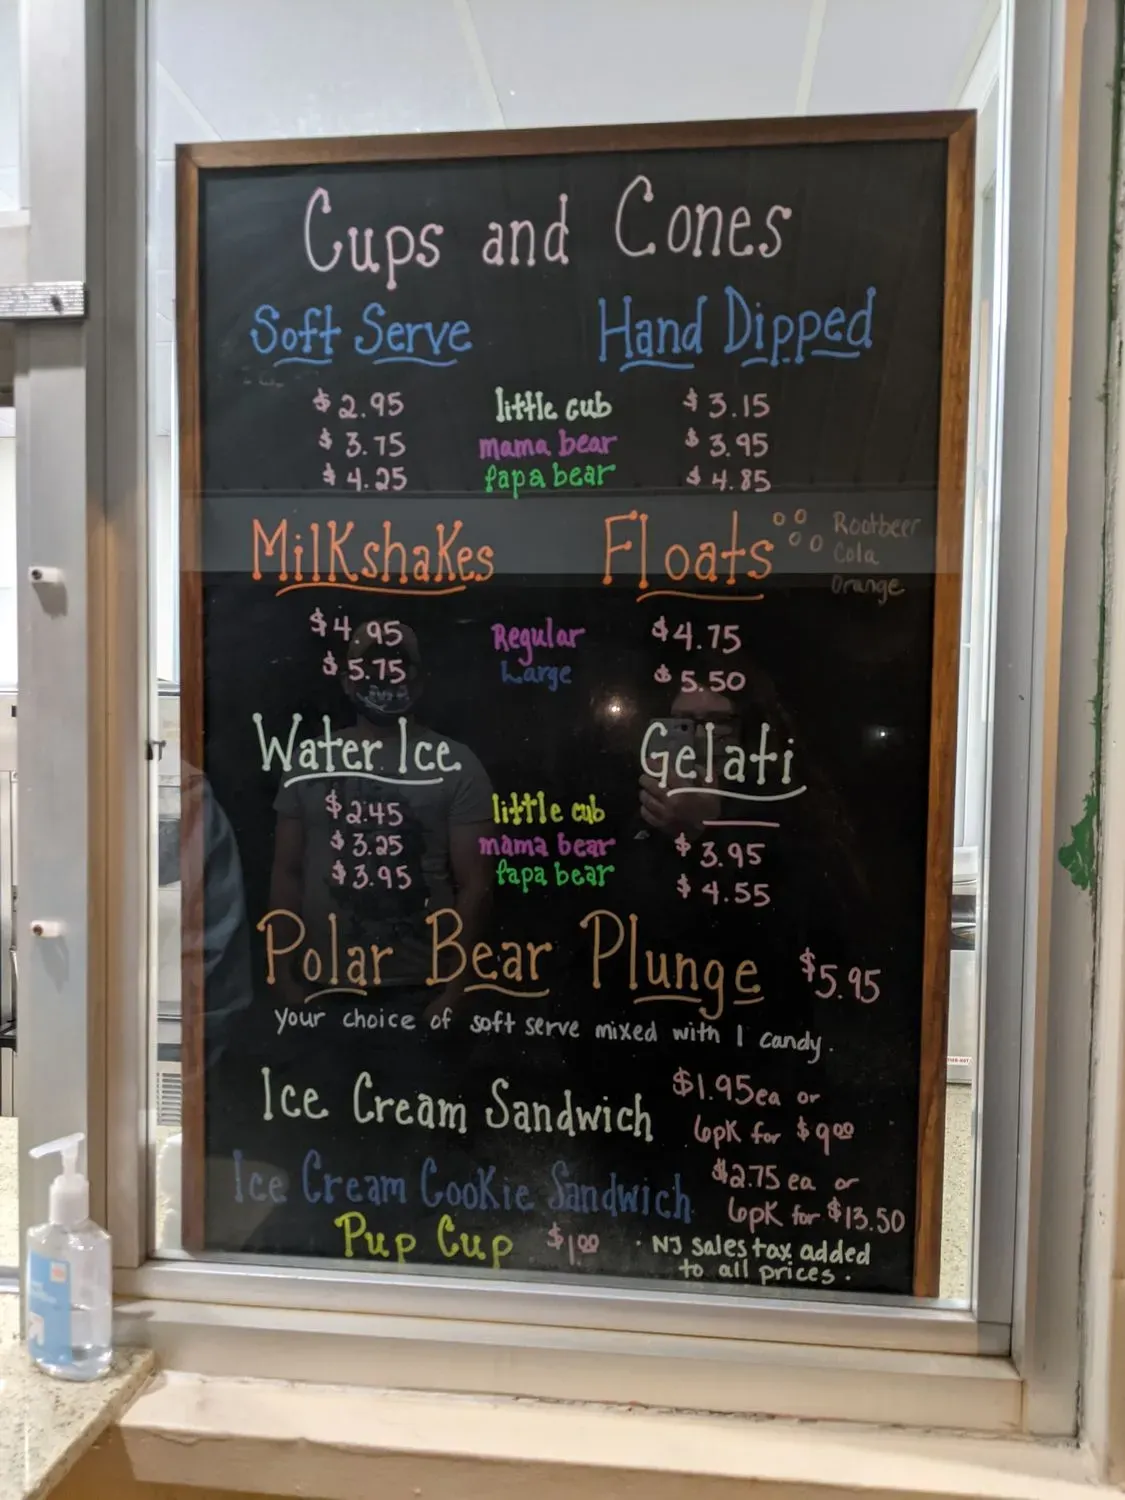 Cups and Cones
Soft Serve Hand Dipped
$2.95 little cub $3.15
$3.75 mama bear $3.95
$4.25 papa bear $4.85
Milkshakes Floats Rootbeer
Cola
Orange
$4.95 Regular $4.75
$5.75 Large $5.50
Water Ice Gelati
$2.45 little cub —
$3.25 mama bear $3.95
$3.95 papa bear $4.55
Polar Bear Plunge $5.95
your choice of soft serve mixed with 1 candy.
Ice Cream Sandwich $1.95ea or
6pk for $9.00
Ice Cream Cookie Sandwich $2.75 ea or
6pk for $13.50
Pup Cup $1.00 · NJ sales tax added
to all prices.